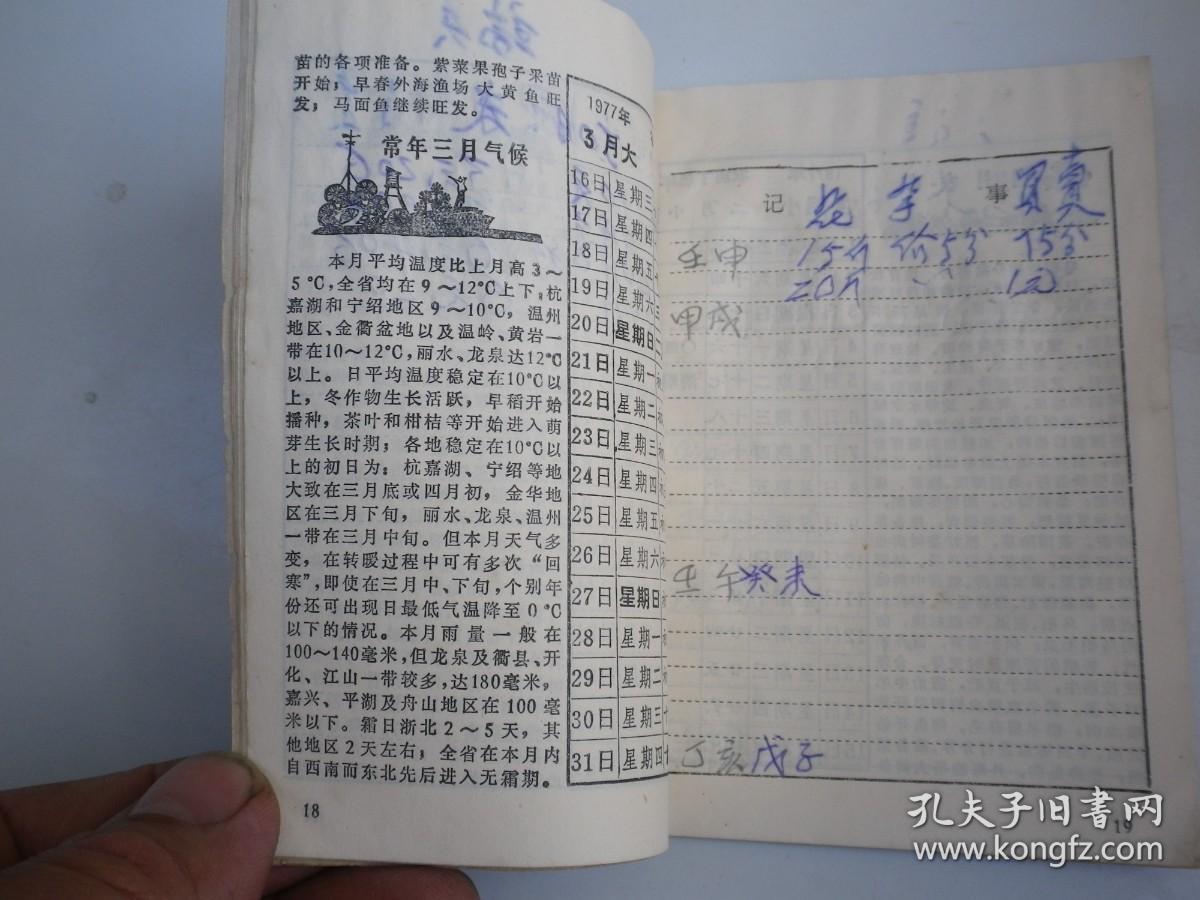 苗的各项准备。紫菜果孢子采苗
开始；早春外海渔场大黄鱼旺
发；马面鱼继续旺发。
常年三月气候
本月平均温度比上月高3～
5℃，全省均在9～12℃上下。杭
嘉湖和宁绍地区9～10℃，温州
地区、金衢盆地以及温岭、黄岩一
带在10～12℃，丽水、龙泉达12℃
以上。日平均温度稳定在10℃以
上，冬作物生长活跃，早稻开始
播种，茶叶和柑桔等开始进入萌
芽生长时期；各地稳定在10℃以
上的初日为：杭嘉湖、宁绍等地
大致在三月底或四月初，金华地
区在三月下旬，丽水、龙泉、温州
一带在三月中旬。但本月天气多
变，在转暖过程中可有多次“回
寒”，即使在三月中、下旬，个别年
份还可出现日最低气温降至0℃
以下的情况。本月雨量一般在
100～140毫米，但龙泉及衢县、开
化、江山一带较多，达180毫米，
嘉兴、平湖及舟山地区在100毫
米以下。霜日浙北2～5天，其
他地区2天左右；全省在本月内
自西南而东北先后进入无霜期。
18
1977年
3月大
16日 星期三
17日 星期四
18日 星期五
19日 星期六
20日 星期日
21日 星期一
22日 星期二
23日 星期三
24日 星期四
25日 星期五
26日 星期六
27日 星期日
28日 星期一
29日 星期二
30日 星期三
31日 星期四
记 事
壬申 15斤 价5分 75分
1元
甲戌
壬午癸未
丁亥戊子
19
孔夫子旧书网
www.kongfz.com